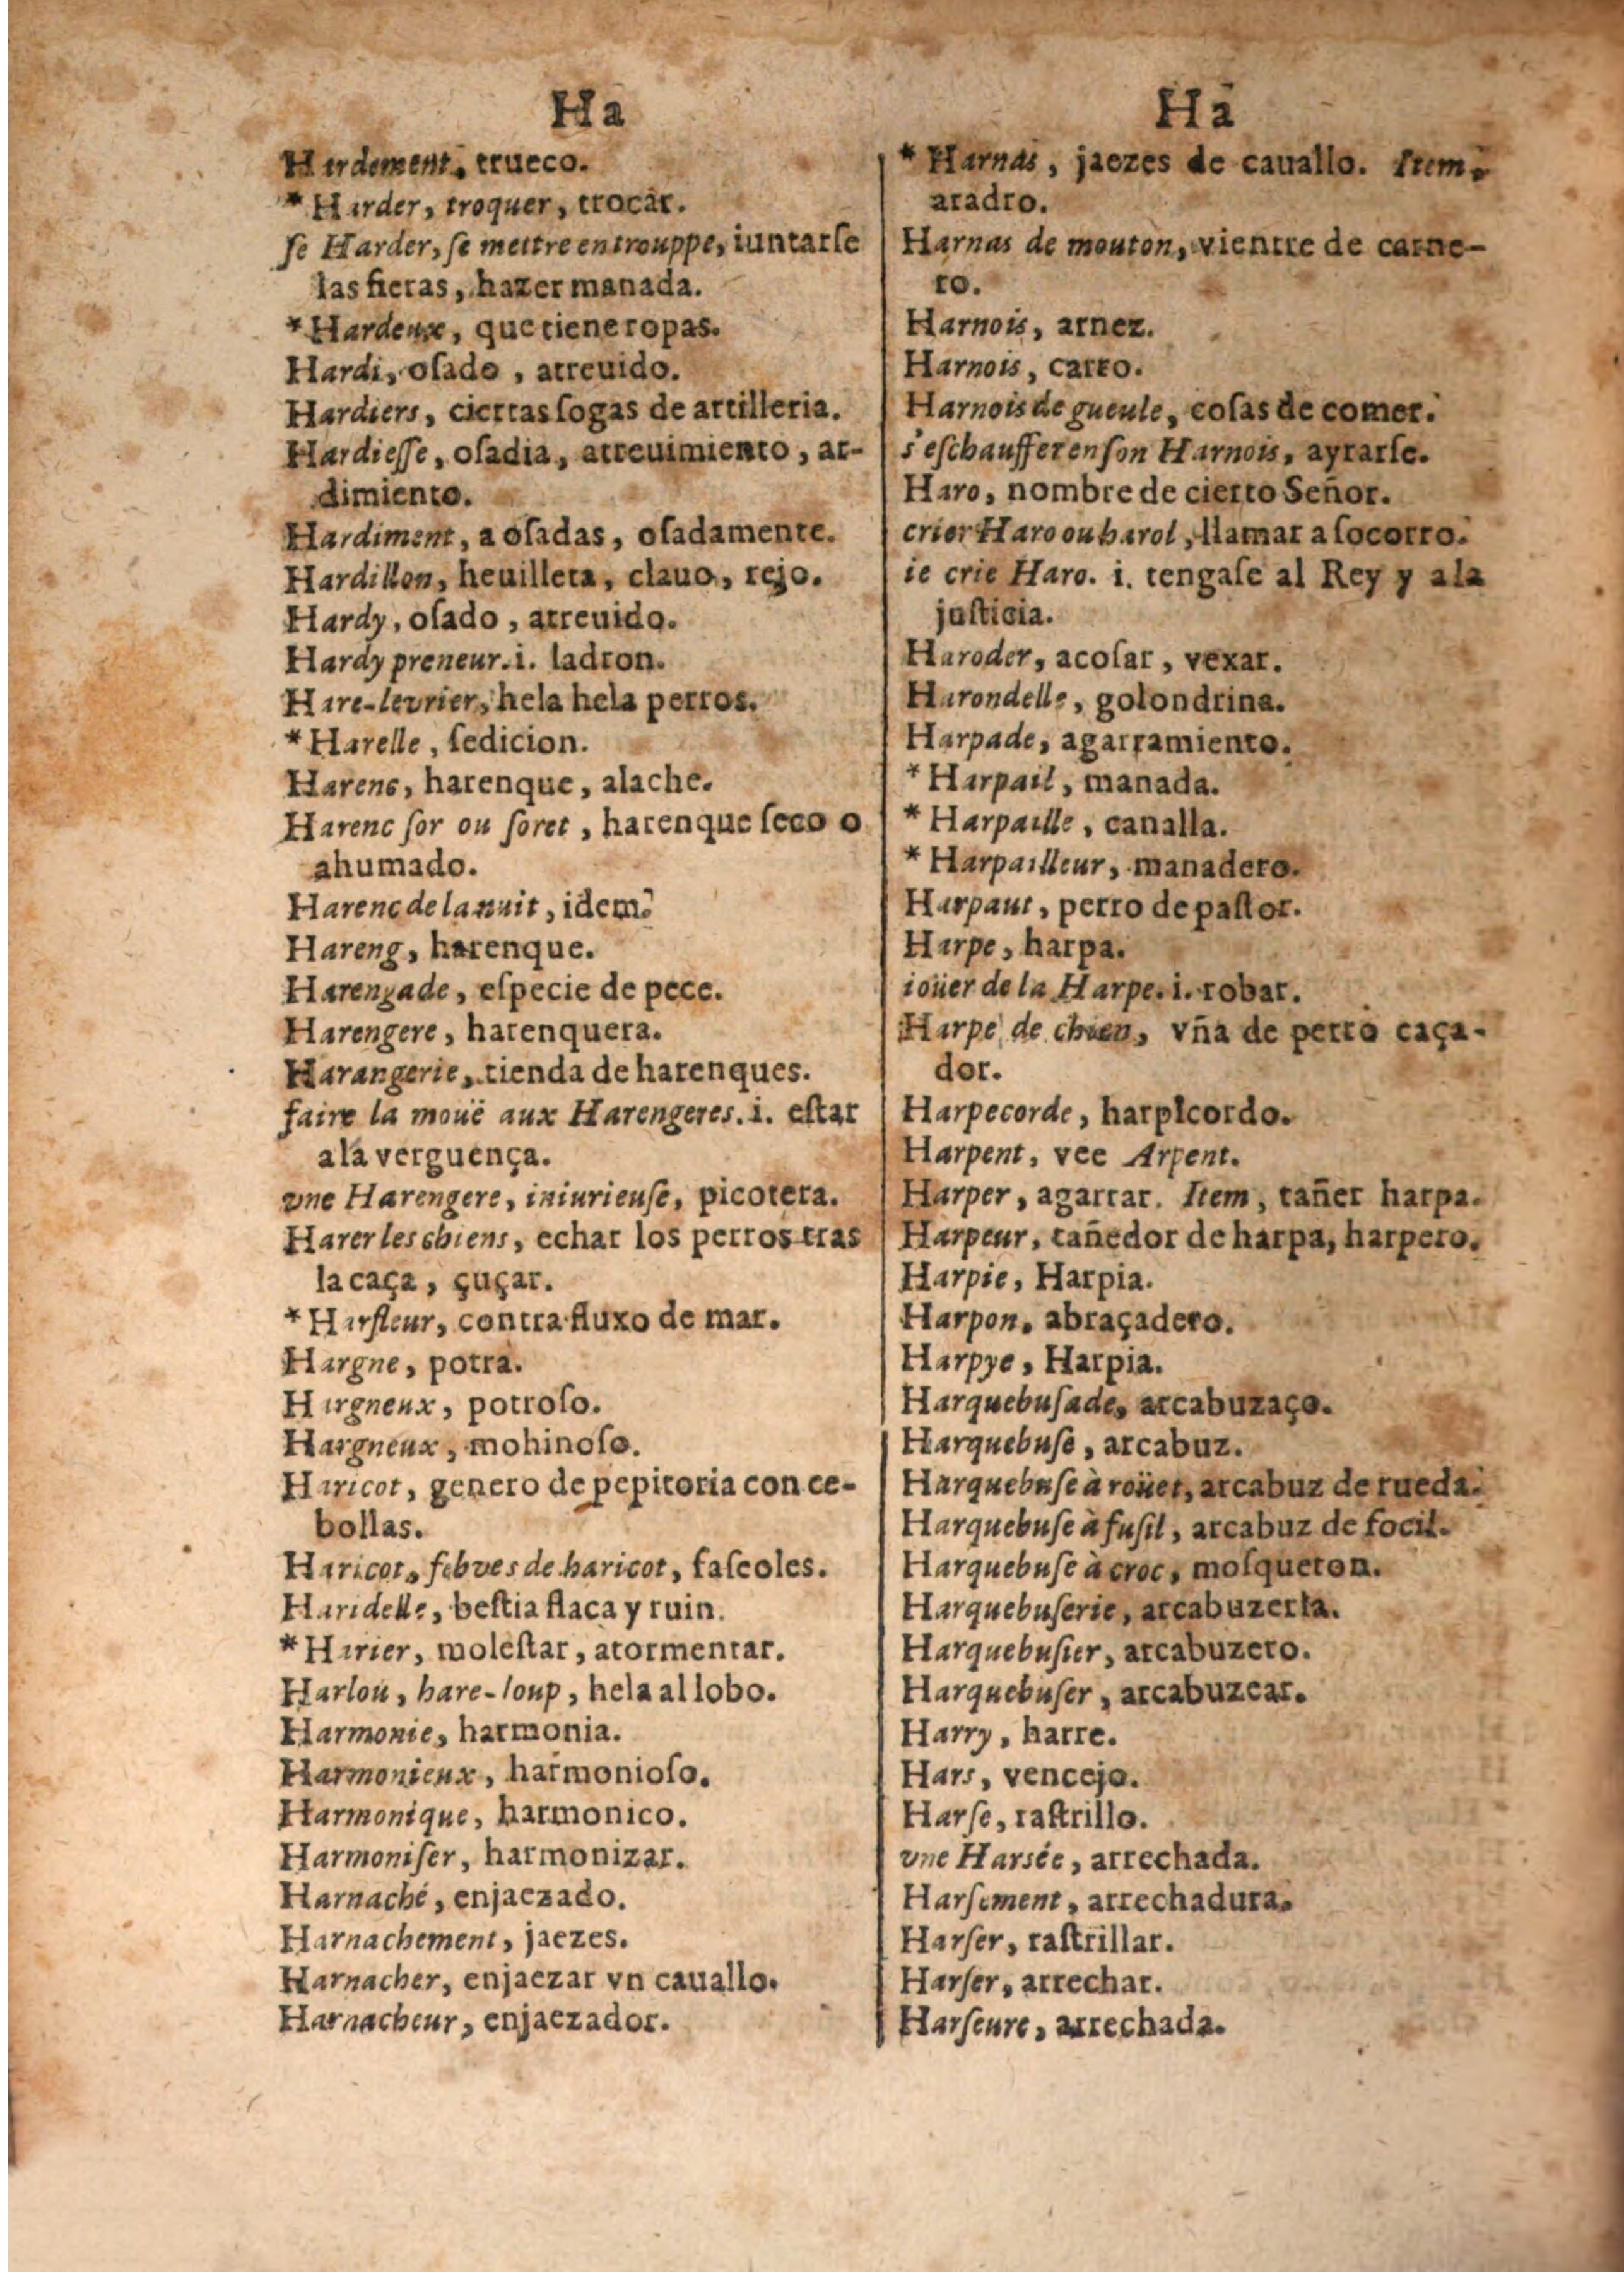 Ha
Hardement, trueco.
* Harder, troquer, trocar.
ſe Harder, ſe mettre en trouppe, iuntarſe
las fieras, hazer manada.
* Hardeux, que tiene ropas.
Hardi, oſado, atreuido.
Hardiers, ciertas ſogas de artilleria.
Hardieſſe, oſadia, atreuimiento, ar-
dimiento.
Hardiment, a oſadas, oſadamente.
Hardillon, heuilleta, clauo, rejo.
Hardy, oſado, atreuido.
Hardy preneur. i. ladron.
Hare-levrier, hela hela perros.
* Harelle, ſedicion.
Harenc, harenque, alache.
Harenc ſor ou ſoret, harenque ſeco o
ahumado.
Harenc de la nuit, idem.
Hareng, harenque.
Harengade, eſpecie de pece.
Harengere, harenquera.
Harangerie, tienda de harenques.
faire la mouë aux Harengeres. i. eſtar
a la verguença.
vne Harengere, iniurieuſe, picotera.
Harer les chiens, echar los perros tras
la caça, çuçar.
* Harfleur, contra fluxo de mar.
Hargne, potra.
Hargneux, potroſo.
Hargneux, mohinoſo.
Haricot, genero de pepitoria con ce-
bollas.
Haricot, febves de haricot, faſeoles.
Haridelle, beſtia flaca y ruin.
* Harier, moleſtar, atormentar.
Harlou, hare-loup, hela al lobo.
Harmonie, harmonia.
Harmonieux, harmonioſo.
Harmonique, harmonico.
Harmoniſer, harmonizar.
Harnaché, enjaezado.
Harnachement, jaezes.
Harnacher, enjaezar vn cauallo.
Harnacheur, enjaezador.
Ha
* Harnas, jaezes de cauallo. Item,
aradro.
Harnas de mouton, vientre de carne-
ro.
Harnois, arnez.
Harnois, carro.
Harnois de gueule, coſas de comer.
s'eſchauffer en ſon Harnois, ayrarſe.
Haro, nombre de cierto Señor.
crier Haro ou harol, llamar a ſocorro.
ie crie Haro. i. tengaſe al Rey y a la
juſticia.
Haroder, acoſar, vexar.
Harondelle, golondrina.
Harpade, agarramiento.
* Harpail, manada.
* Harpaille, canalla.
* Harpailleur, manadero.
Harpaut, perro de paſtor.
Harpe, harpa.
ioüer de la Harpe. i. robar.
Harpe de chien, vña de perro caça-
dor.
Harpecorde, harpicordo.
Harpent, vee Arpent.
Harper, agarrar. Item, tañer harpa.
Harpeur, tañedor de harpa, harpero.
Harpie, Harpia.
Harpon, abraçadero.
Harpye, Harpia.
Harquebuſade, arcabuzaço.
Harquebuſe, arcabuz.
Harquebuſe à roüet, arcabuz de rueda.
Harquebuſe à fuſil, arcabuz de focil.
Harquebuſe à croc, moſqueton.
Harquebuſerie, arcabuzeria.
Harquebuſier, arcabuzero.
Harquebuſer, arcabuzear.
Harry, harre.
Hars, vencejo.
Harſe, raſtrillo.
vne Harsée, arrechada.
Harſement, arrechadura.
Harſer, raſtrillar.
Harſer, arrechar.
Harſeure, arrechada.